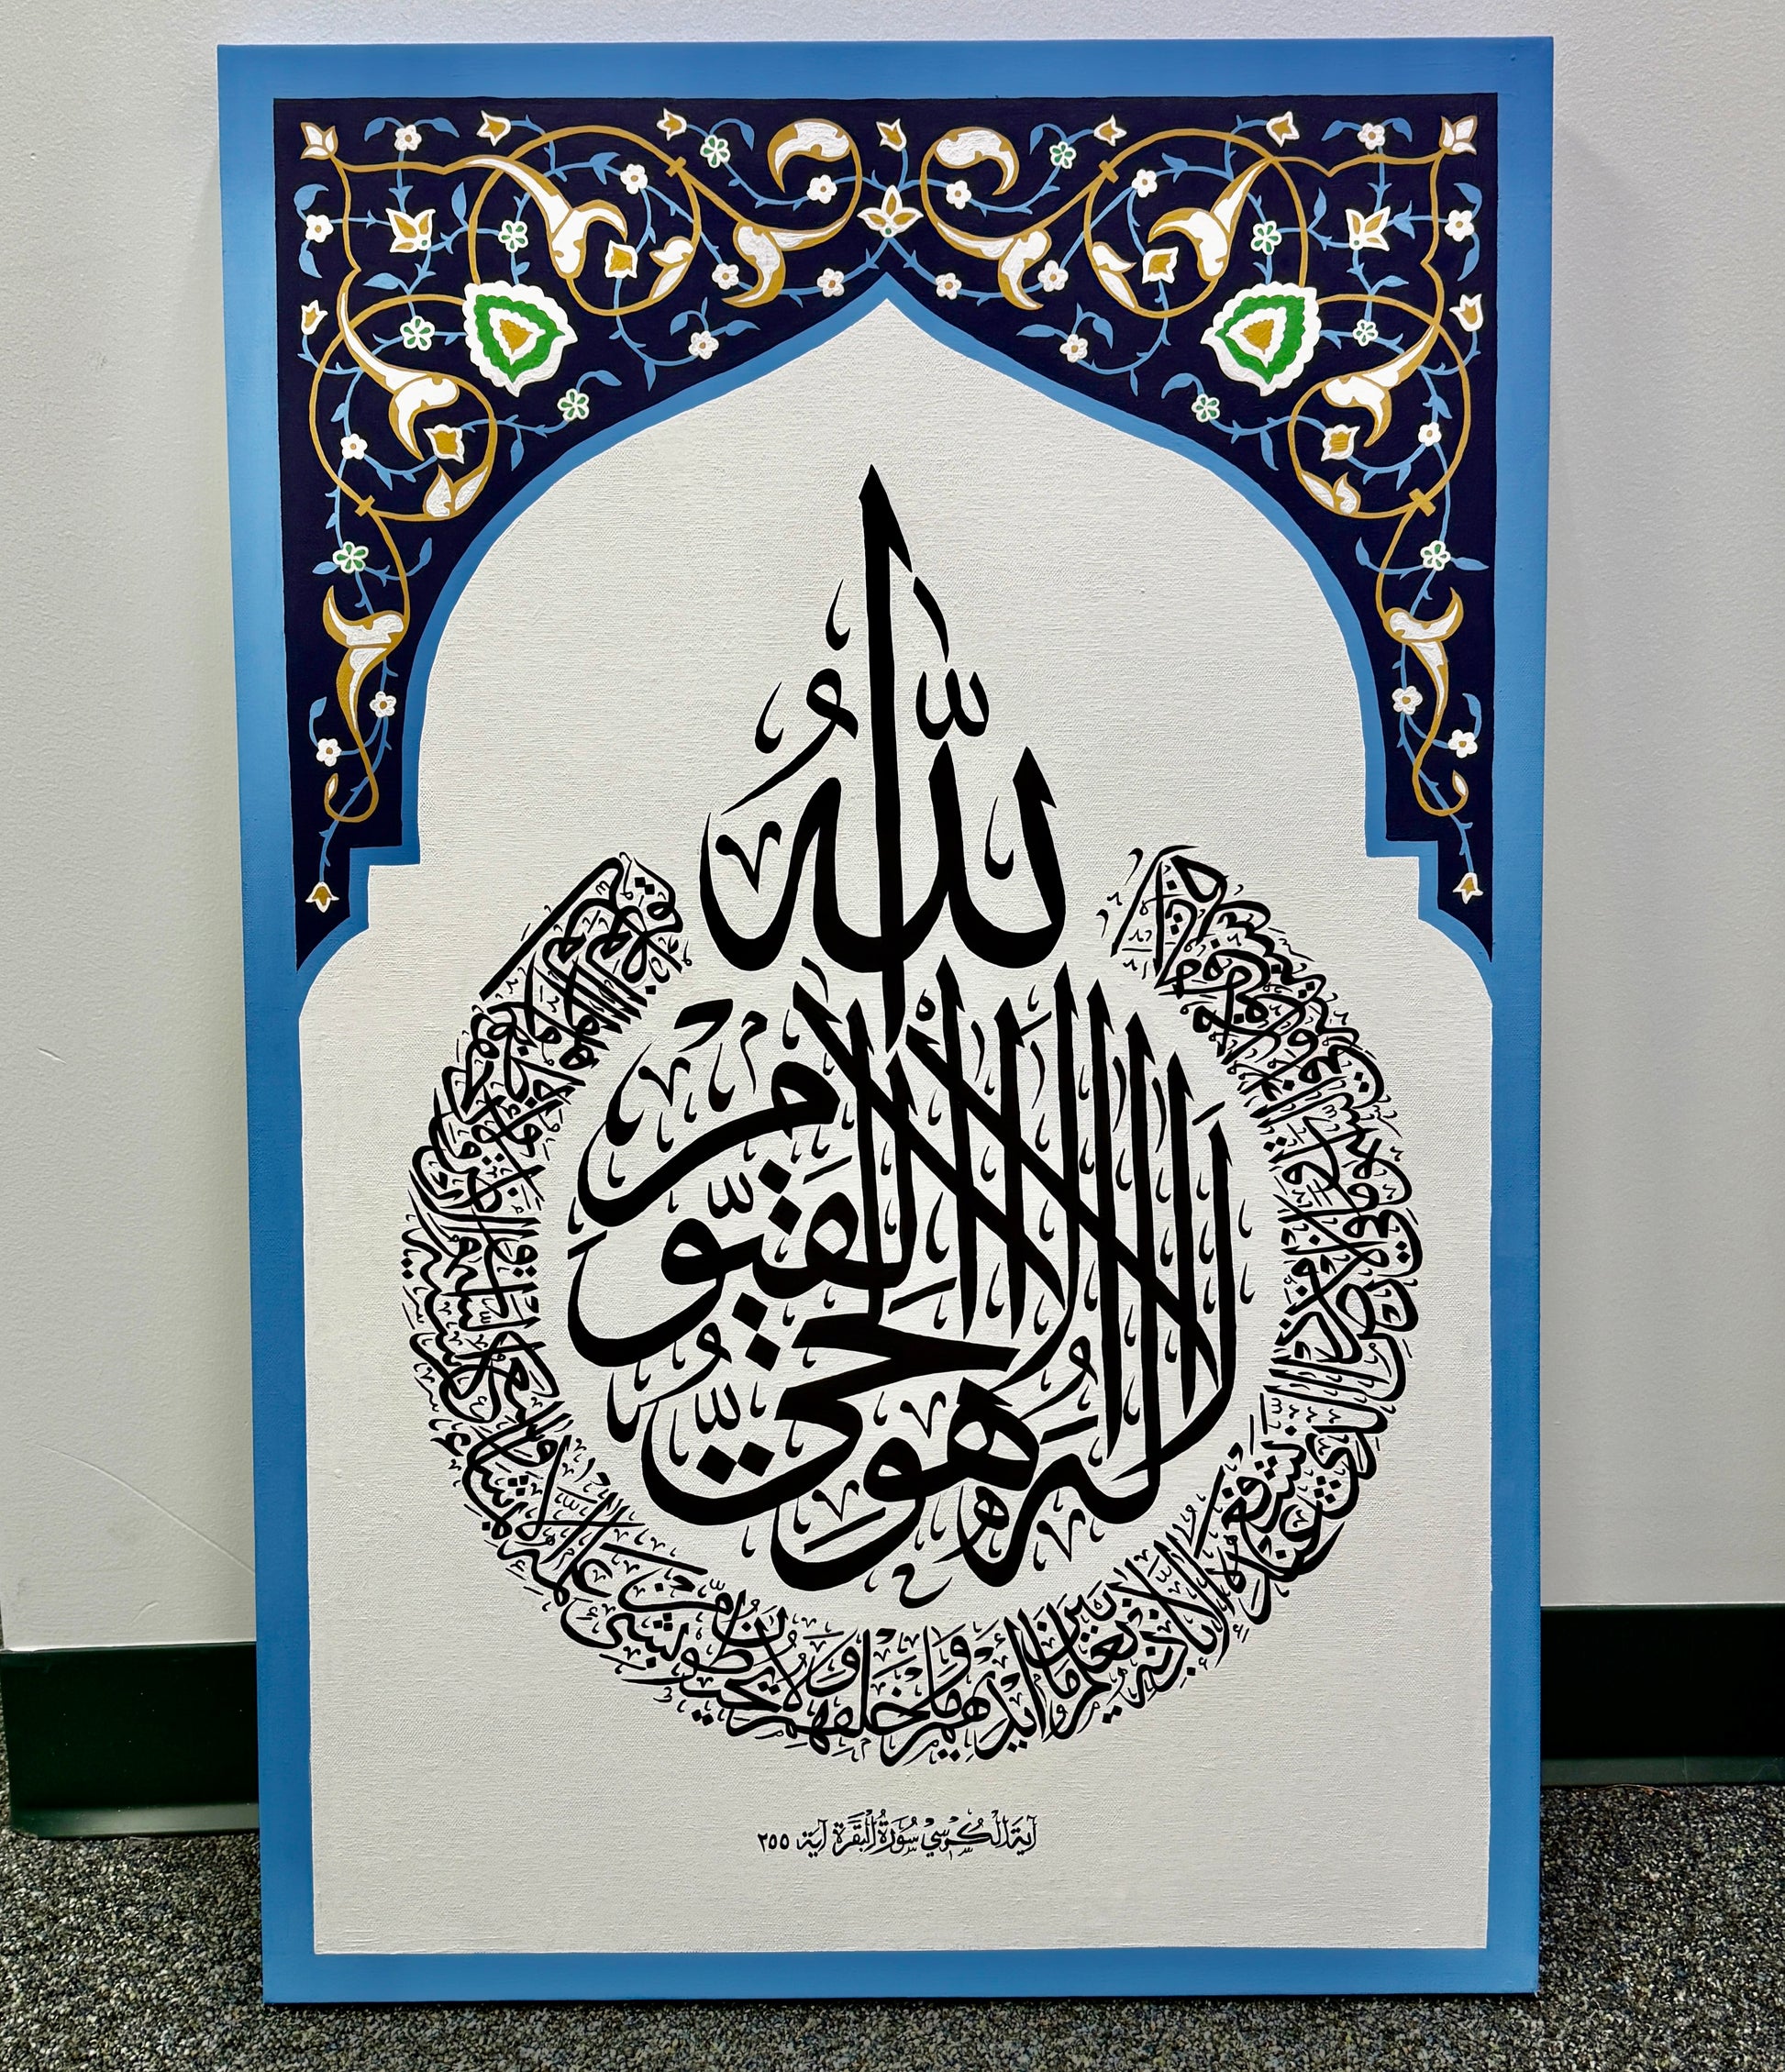 ٱللَّهُ
لَا إِلَٰهَ إِلَّا هُوَ الْحَيُّ الْقَيُّومُ
لَا تَأْخُذُهُ سِنَةٌ وَلَا نَوْمٌ لَهُ مَا فِي السَّمَاوَاتِ وَمَا فِي الْأَرْضِ مَنْ ذَا الَّذِي يَشْفَعُ عِنْدَهُ إِلَّا بِإِذْنِهِ يَعْلَمُ مَا بَيْنَ أَيْدِيهِمْ وَمَا خَلْفَهُمْ وَلَا يُحِيطُونَ بِشَيْءٍ مِنْ عِلْمِهِ إِلَّا بِمَا شَاءَ وَسِعَ كُرْسِيُّهُ السَّمَاوَاتِ وَالْأَرْضَ وَلَا يَئُودُهُ حِفْظُهُمَا وَهُوَ الْعَلِيُّ الْعَظِيمُ
آيَةُ الْكُرْسِي سُورَةُ الْبَقَرَة آية ٢٥٥